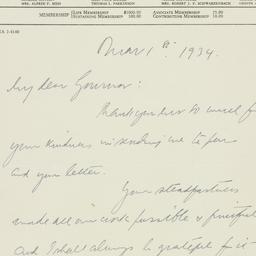 MRS. ALFRED F. HESS THOMAS I. PARKINSON MRS. ROBERT J. F. SCHWARZENBACH
MEMBERSHIP Life Membership $1000.00 Associate Membership 25.00
Sustaining Membership 100.00 Contributing Membership 10.00
March 1st. 1934.
My dear Governor:
Thank you ever so much for
your kindness in sending me the pen
and your letter.
Your steadfastness
made all our work possible & fruitful
and I shall always be grateful for it